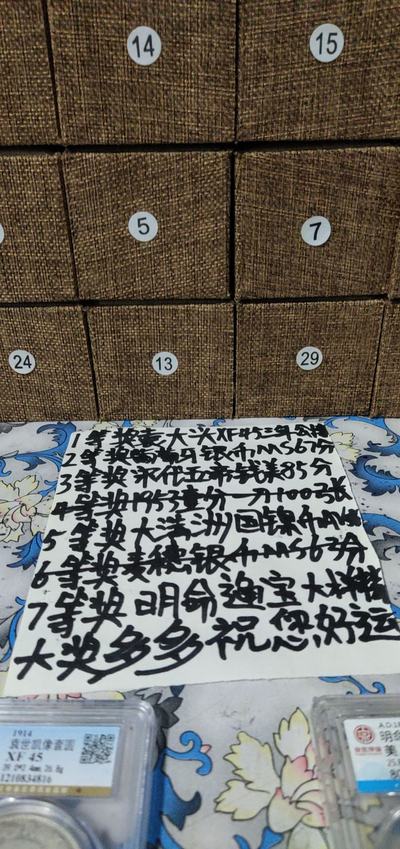 14
15
5
7
24
13
29
1等奖袁大头XF45三年公博
2等奖 马银币MS67分
3等奖 宋代五帝钱美85分
4等奖1953壹分一分100张
5等奖大满洲国镍币
6等奖麦穗银币MS63分
7等奖明命通宝大样
大奖多多祝您好运
1914
袁世凯像壹圆
XF 45
1210834816
A.D.18
明命
美